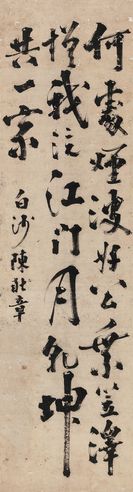 何處煙波好公乘笠澤
槎我泛江門月乾坤
共一家
白沙陳獻章